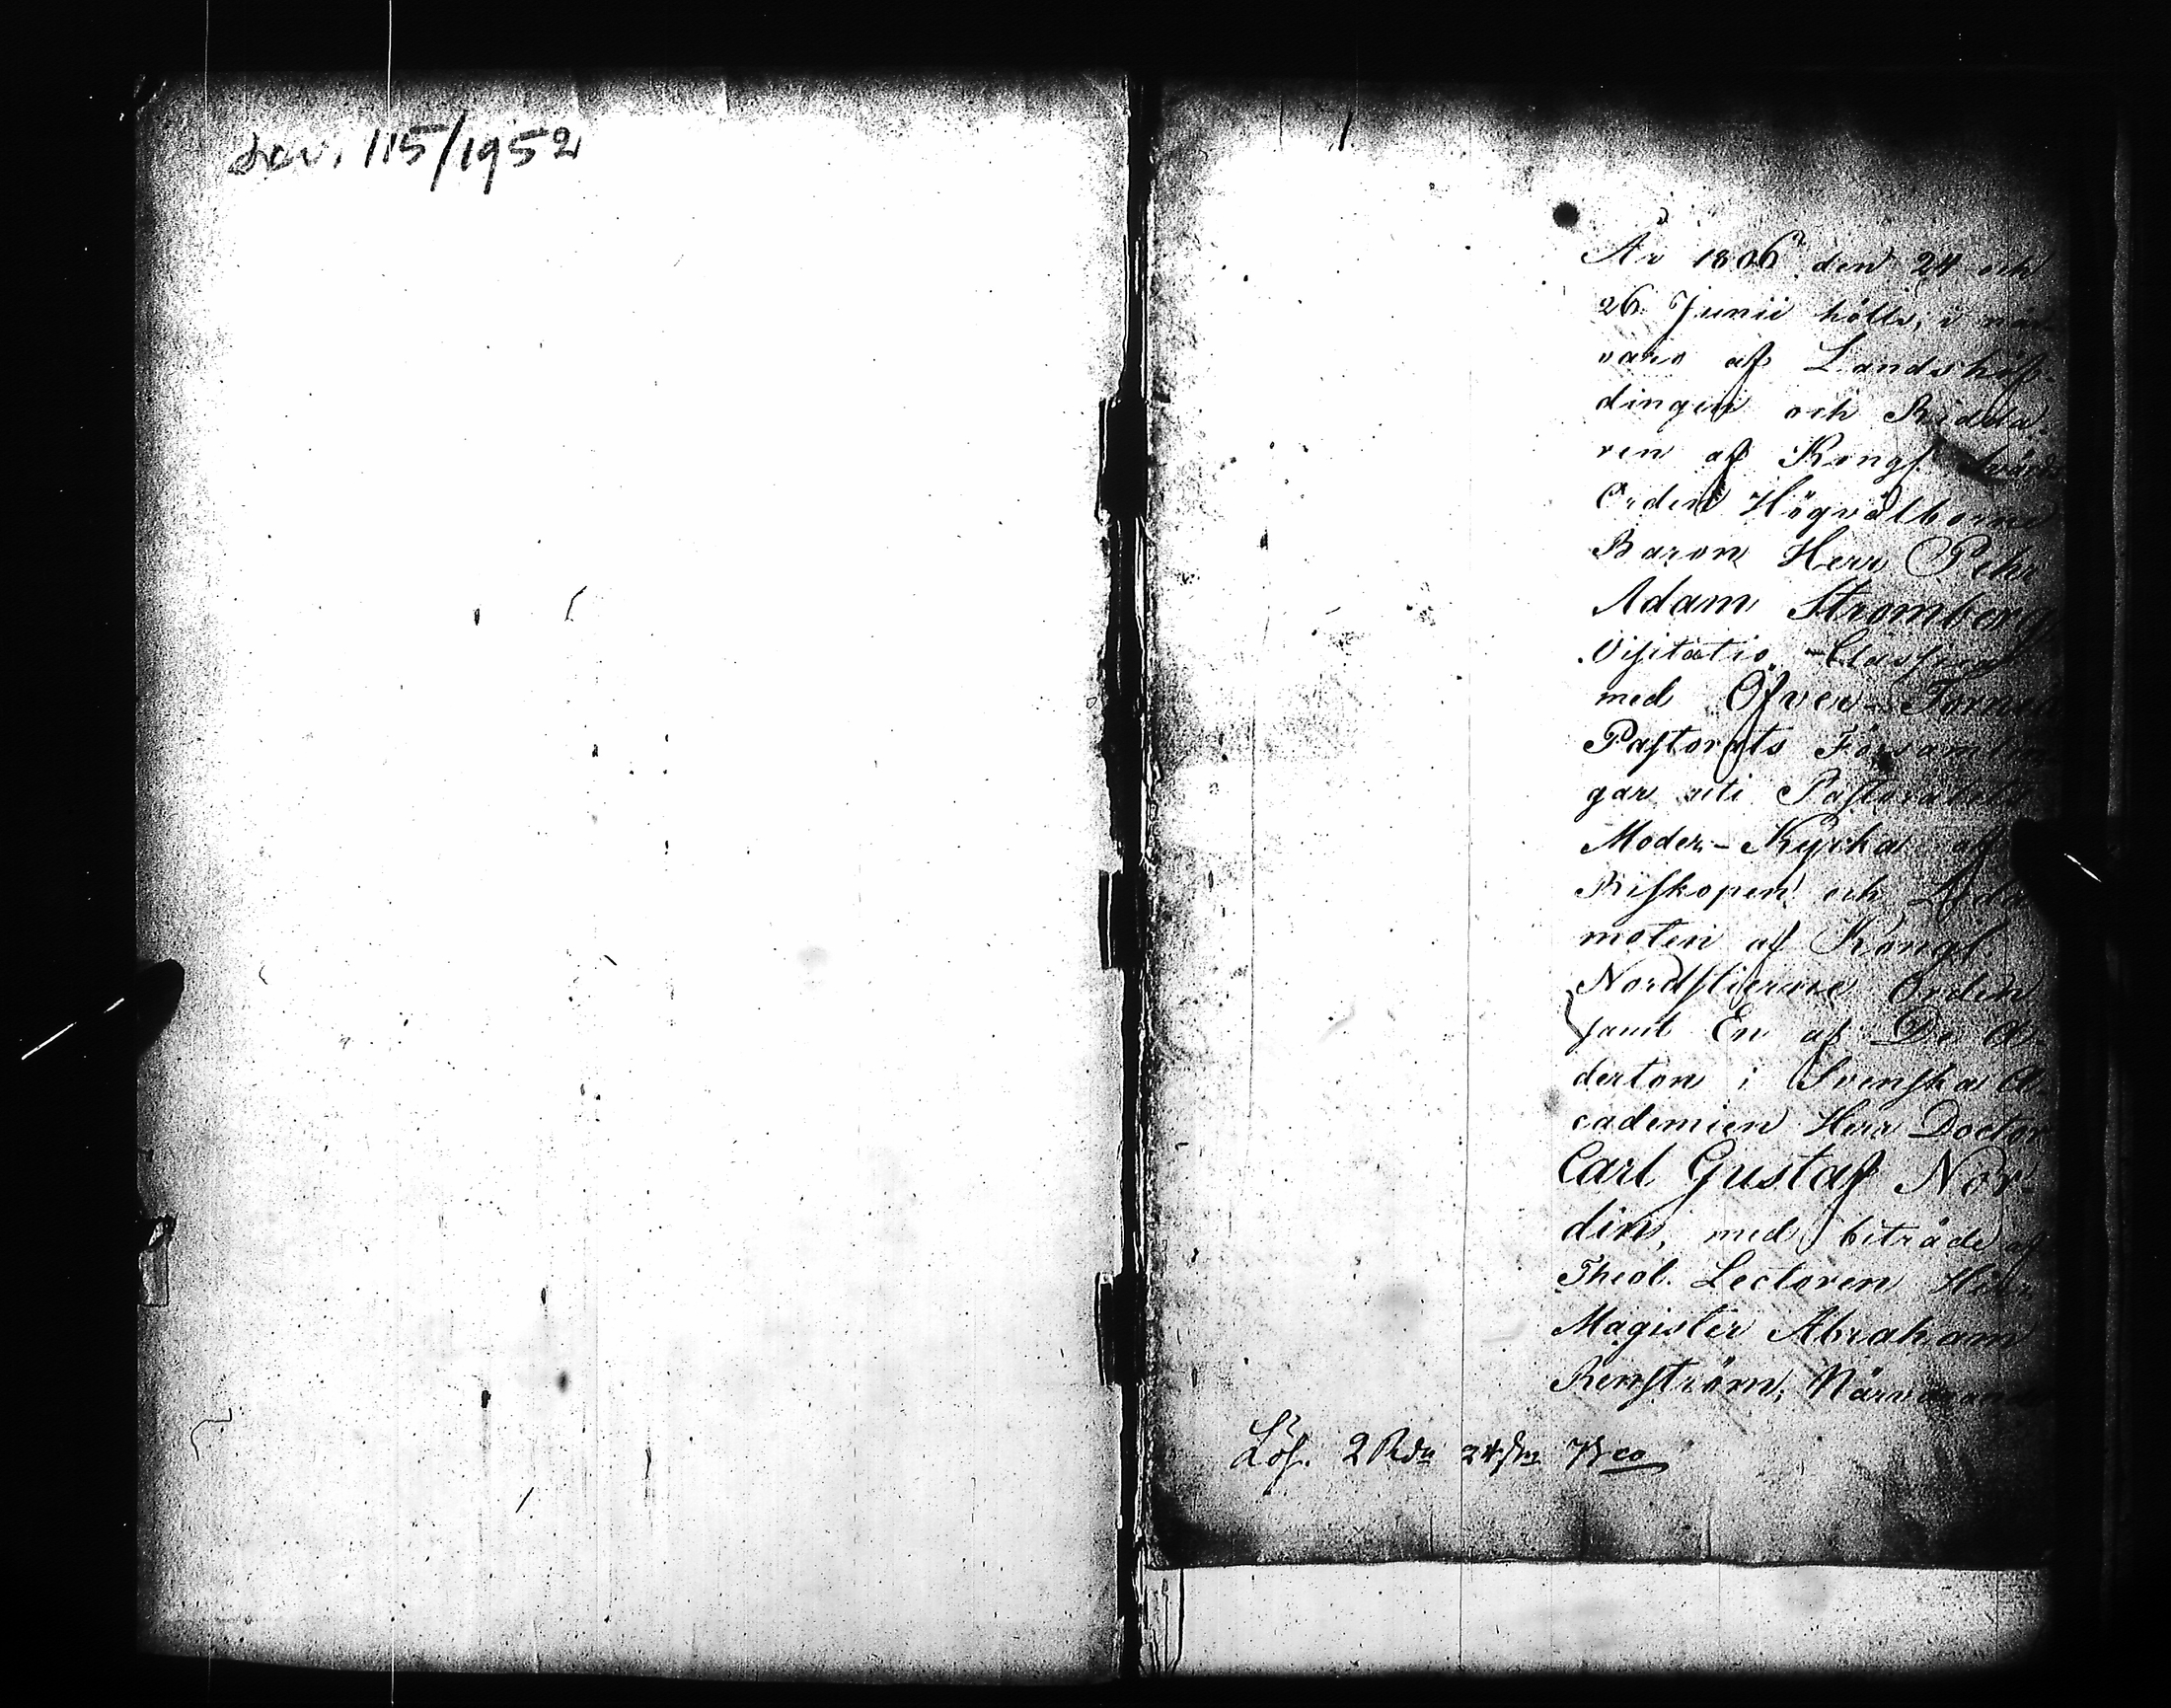 acc. 115/1952
År 1806 den 24 och
26 Junii hölls, i när-
varo af Landshöf-
dingen och Ridda-
ren af Kongl. Svärds
Orden Högvälborne
Baron Herr Pehr
Adam Stromberg
Visitatio
med Öfver-Torneå
Pastorats Församlin
gar uti Pastoratets
Moder-Kyrka af
Biskopen och Leda
moten af Kongl.
Nordstierne Orden
samt En af De A-
derton i Svenska A-
cademien Herr Doctor
Carl Gustaf Nor-
din, med biträde af
Theol. Lectoren Herr
Magister Abraham
Renström, Närvarande
Lös. 2 Rdr 24 sk